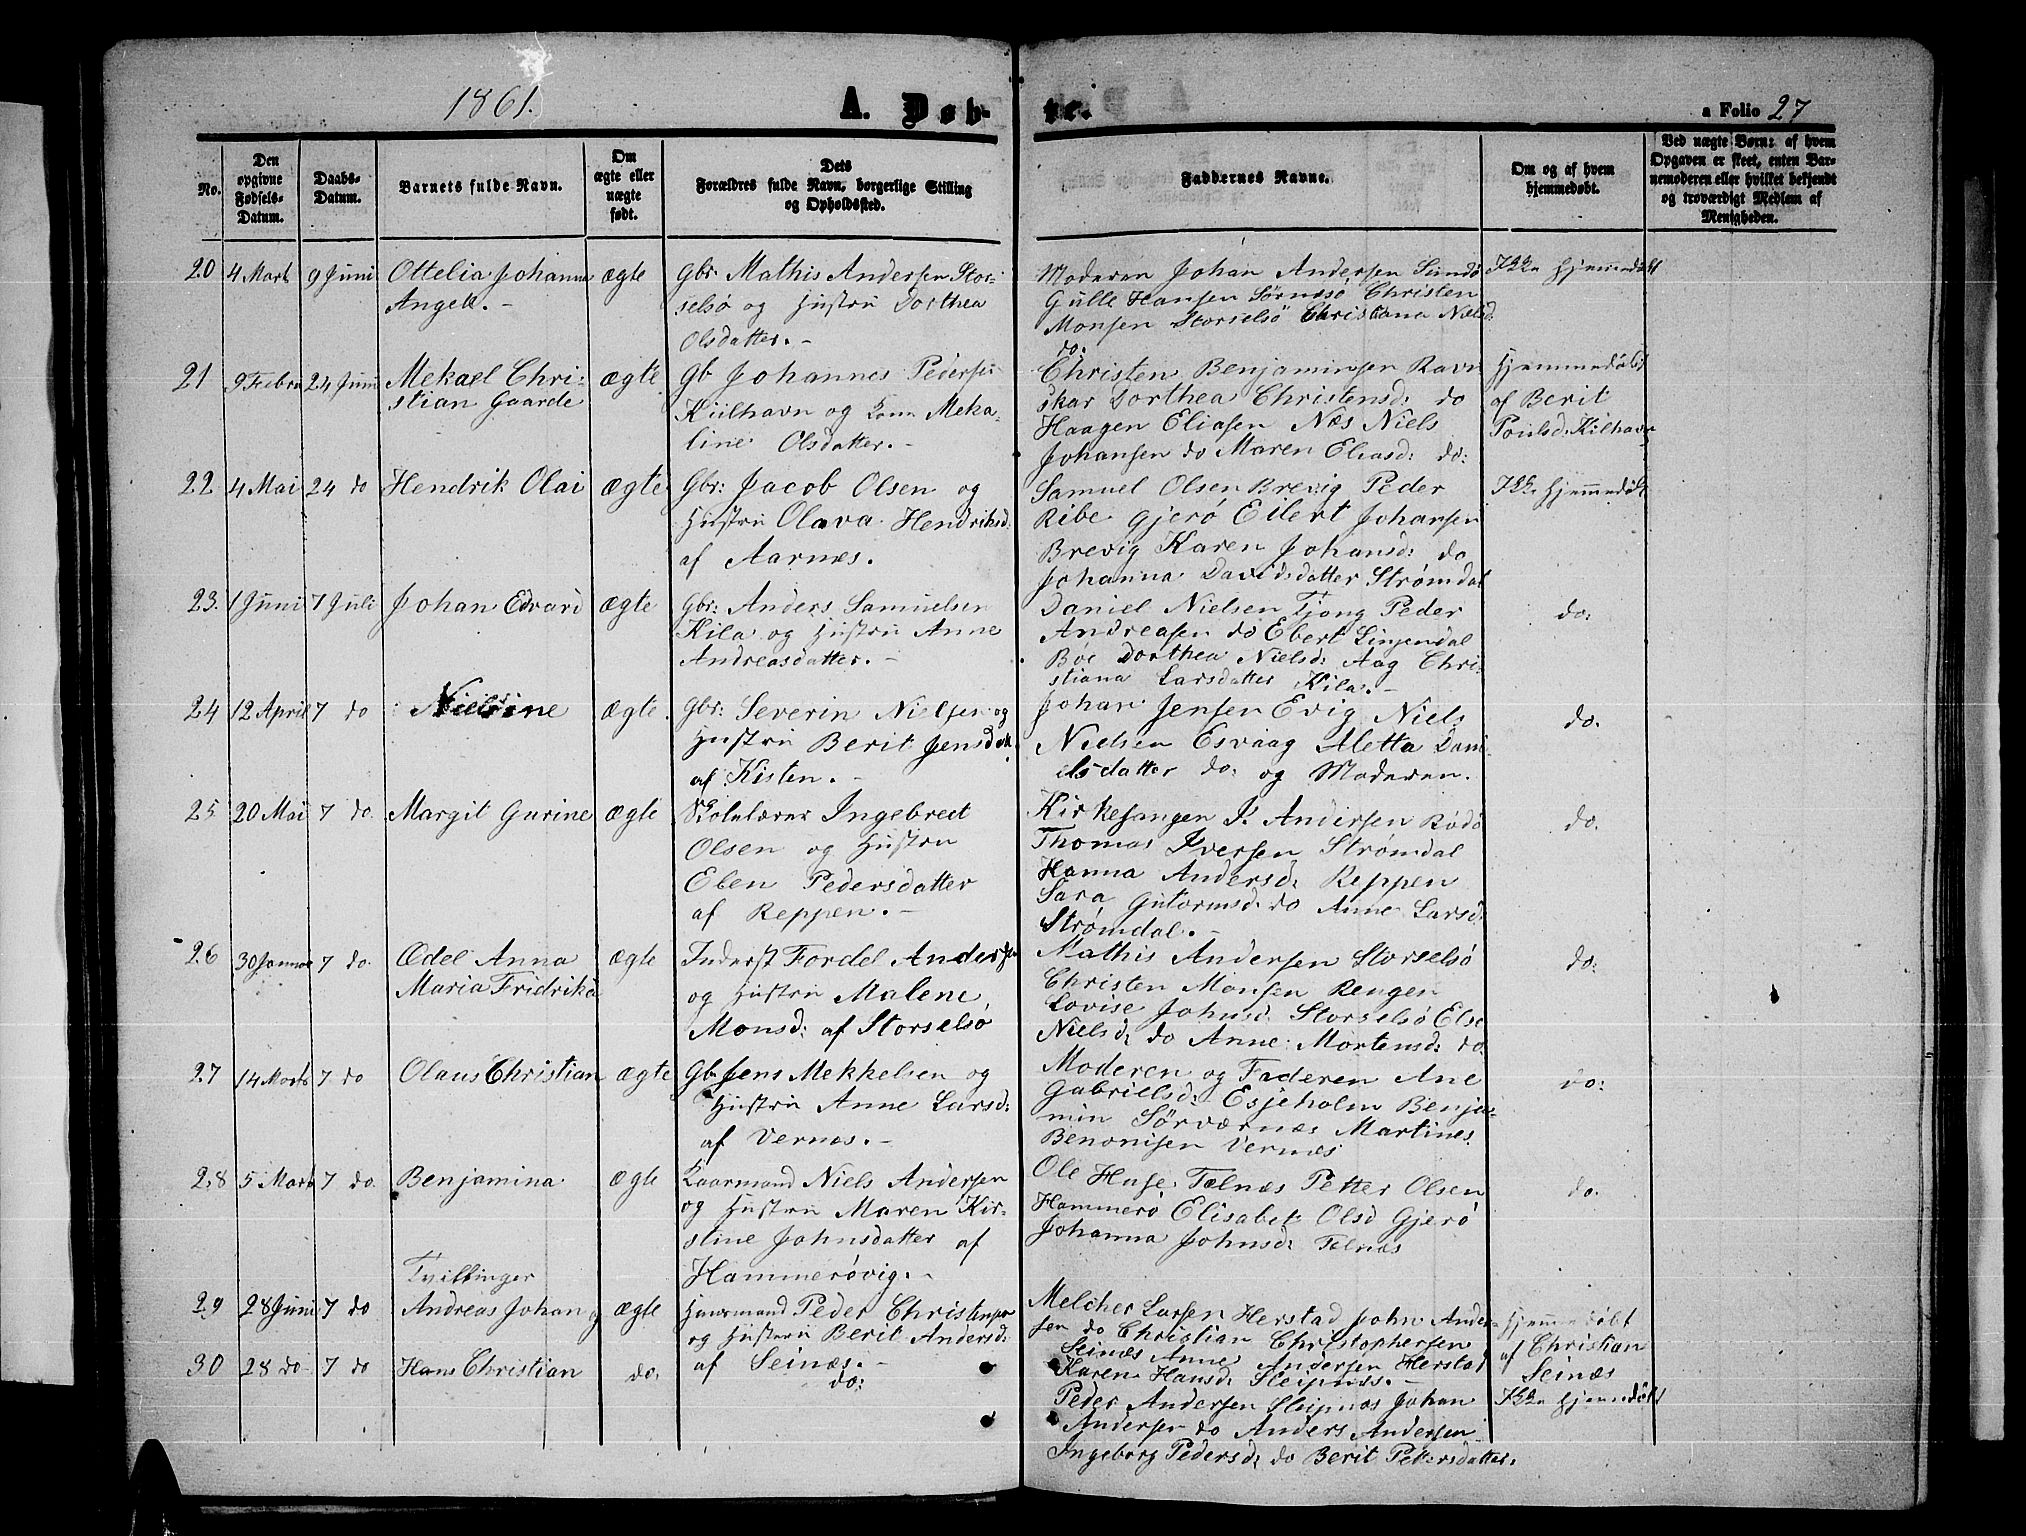 1861.
A. Døb-
te.
a Folio 27
No.
Den opgivne Fødsels-Datum.
Daabs-Datum.
Barnets fulde Navn.
Om ægte eller uægte født.
Dets Forældres fulde Navn, borgerlige Stilling og Opholdssted.
Faddernes Navne.
Om og af hvem hjemmedøbt.
Ved uægte Børn: af hvem Opgaven er skeet, enten Barnemoderen eller hvilket bekjendt og troværdigt Medlem af Menigheden.
20 4 Marts 9 Juni Ottelia Johanna ægte Gbr. Mathis Andersen Stor-
Angell.- selsø og Hustru Dorthea
Olsdatter.-
Moderen Johan Andersen Sundø Ikke hjemmedøbt
Gulle Hansen Sørnesø Christen
Monsen Storselsö Christiana Nielsd:
do:
21 9 Febru 24 Juni Mekael Chri- ægte Gb Johannes Pedersen
stian Gaarde Kiilhavn og Kone Meka-
line Olsdatter.-
Christen Benjaminsen Ravn hjemmedøbt
skar Dorthea Christensd: do af Berit
Haagen Eliasen Næs Niels Poulsd: Kilhavn
Johansen do Maren Eliasd: do:
22 4 Mai 24 do Hendrik Olai ægte Gbr: Jacob Olsen og
Hustru Olava Hendriksd:
af Aarnæs.
Samuel Olsen Brevig Peder Ikke hjemmedøbt
Ribe Gjerø Eilert Johansen
Brevig Karen Johansd: do
Johanna Davidsdatter Strømdal
23. 1 Juni 7 Juli Johan Edvard ægte Gbr: Anders Samuelsen
Kila og Hustru Anne
Andreasdatter.-
Daniel Nielsen Tjong Peder do:
Andreasen do Ebert Lingendal
Böe Dorthea Nielsd: Aag Chri-
stiana Larsdatter Kila.-
24 12 April 7 do Nielsine ægte. Gbr: Severin Nielsen og
Hustru Berit Jensdatt
af Kisten.-
Johan Jensen Evig Niels do.
Nielsen Esvaag Aletta Dani-
elsdatter do: og Moderen.
25 20 Mai 7 do. Margit Gurine ægte Skolelærer Ingebregt
Olsen og Hustru
Eben Pedersdatter
af Reppen.-
Kirkesanger P. Andersen Rödö do.
Thomas Iversen Strømdal
Hanna Andersd: Reppen
Sara Gutormsd: do Anne Larsd:
Strømdal.-
26 30 Januar 7 do. Ædel Anna ægte Inderst Fordel Andersen
Maria Fridrika og Hustru Malene
Monsd: af Storselsö
Mathis Andersen Storselsö do:
Christen Monsen Rengen
Lovise Johnsd: Storselsö Else
Nielsd: do Anne Mortensd: do.
27 14 Marts 7 do Olaus Christian ægte Gb Jens Mekkelsen og
Hustru Anne Larsd:
af Vernæs.-
Moderen og Faderen Ane do:
Gabrielsd: Esjeholm Benja-
min Sörværnæs Martines
Benonisen Vernæs
28 5 Marts 7 do. Benjamina ægte Kaarmand Niels Andersen
og Hustru Maren Kir-
stine Johnsdatter af
Hammerøvig.-
Ole Huse Telnæs Petter Olsen do.
Hammerö Elisabet Olsd Gjerö
Johanna Johnsd: Telnæs
Tvillinger
29 28 Juni 7 do Andreas Johan og ægte Huusmand Peder Christensen
og Hustru Berit Andersd:
af Seinæs.-
Melcher Larsen Herstad John Ander- hjemmedøbt
sen do Christian Christophersen af Christian
Seinæs Anne Andersen Herstad Seinæs
Karen Hansd: Sleipnæs.-
30 28 do 7 do Hans Christian do: do:
Peder Andersen Sleipnæs Johan Ikke hjemmedøbt
Andersen do Anders Andersen
Ingeborg Pedersd: do Berit Pettersdatter.